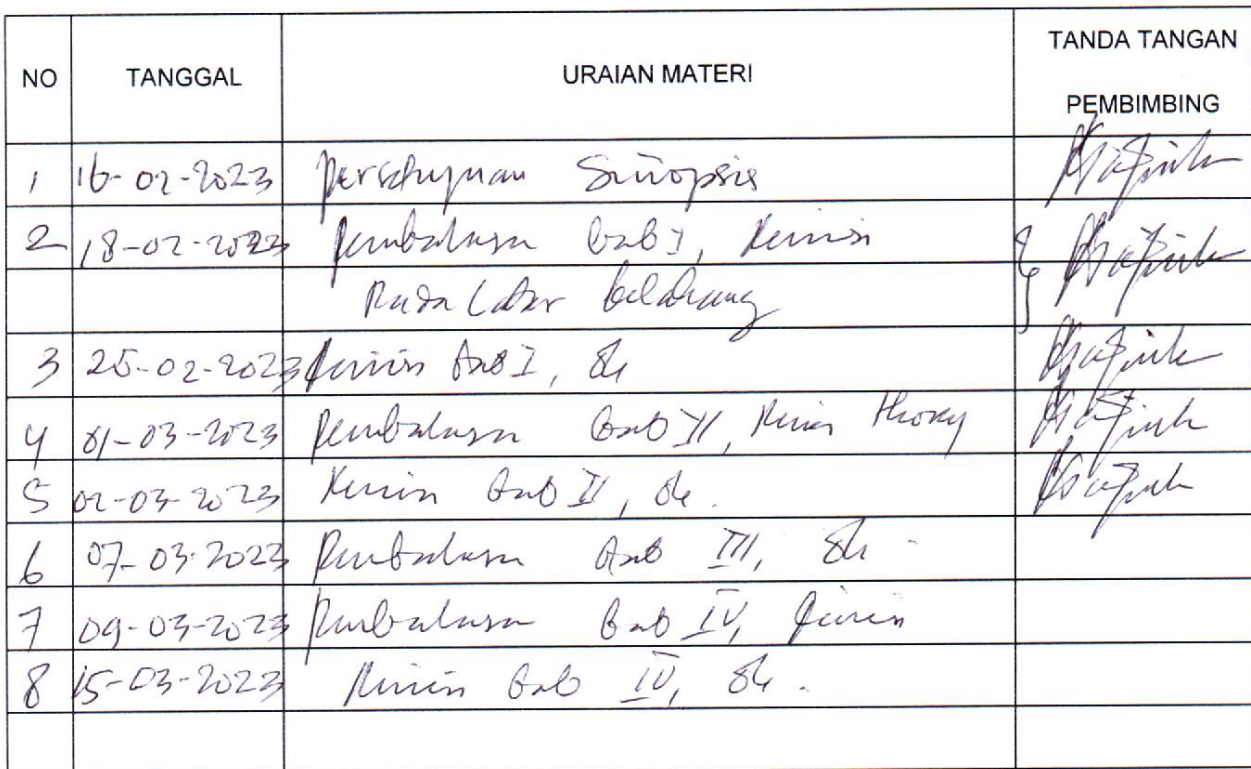 NO TANGGAL URAIAN MATERI TANDA TANGAN PEMBIMBING
1 16-02-2023 Persetujuan Sinopsis
2 18-02-2023 Pembahasan Bab I, Revisi
Pada Latar belakang
3 25-02-2023 Revisi Bab I,
4 01-03-2023 Pembahasan Bab II, Revisi
5 02-03-2023 Revisi Bab II,
6 07-03-2023 Pembahasan Bab III,
7 09-03-2023 Pembahasan Bab IV, Revisi
8 15-03-2023 Revisi Bab IV,